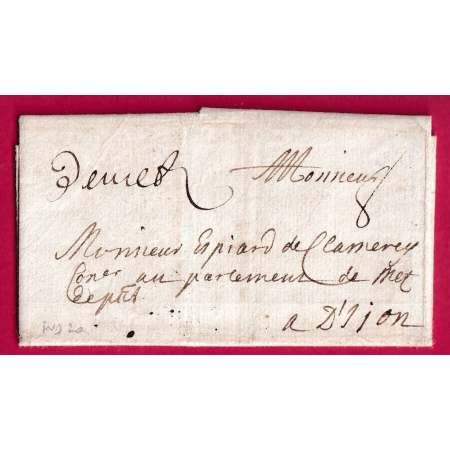 De met Monsieur
8
Monsieur Espiard de Clamerey
Coner au parlement de Met
depuis
a D'Ijon